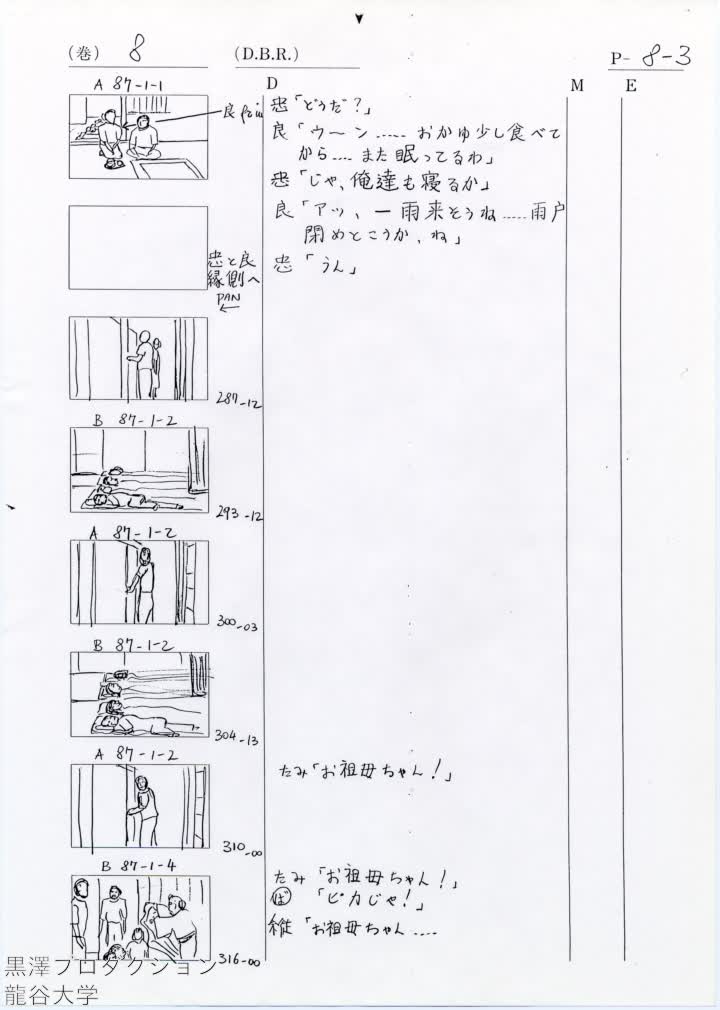 (巻) 8 (D.B.R.) P- 8-3
D M E
A 87-1-1
忠「どうだ？」
良「ウ〜ン‥‥‥おかゆ少し食べて
から‥‥また眠ってるわ」
忠「じゃ、俺達も寝るか」
良「アッ、一雨来そうね‥‥‥雨戸
閉めとこうか、ね」
忠「うん」
忠と良
縁側へ
PAN
←
287-12
B 87-1-2
293-12
A 87-1-2
300-03
B 87-1-2
304-13
A 87-1-2
たみ「お祖母ちゃん！」
310-00
B 87-1-4
たみ「お祖母ちゃん！」
ば 「ピカじゃ！」
縦「お祖母ちゃん‥‥
316-00
黒澤プロダクション
龍谷大学